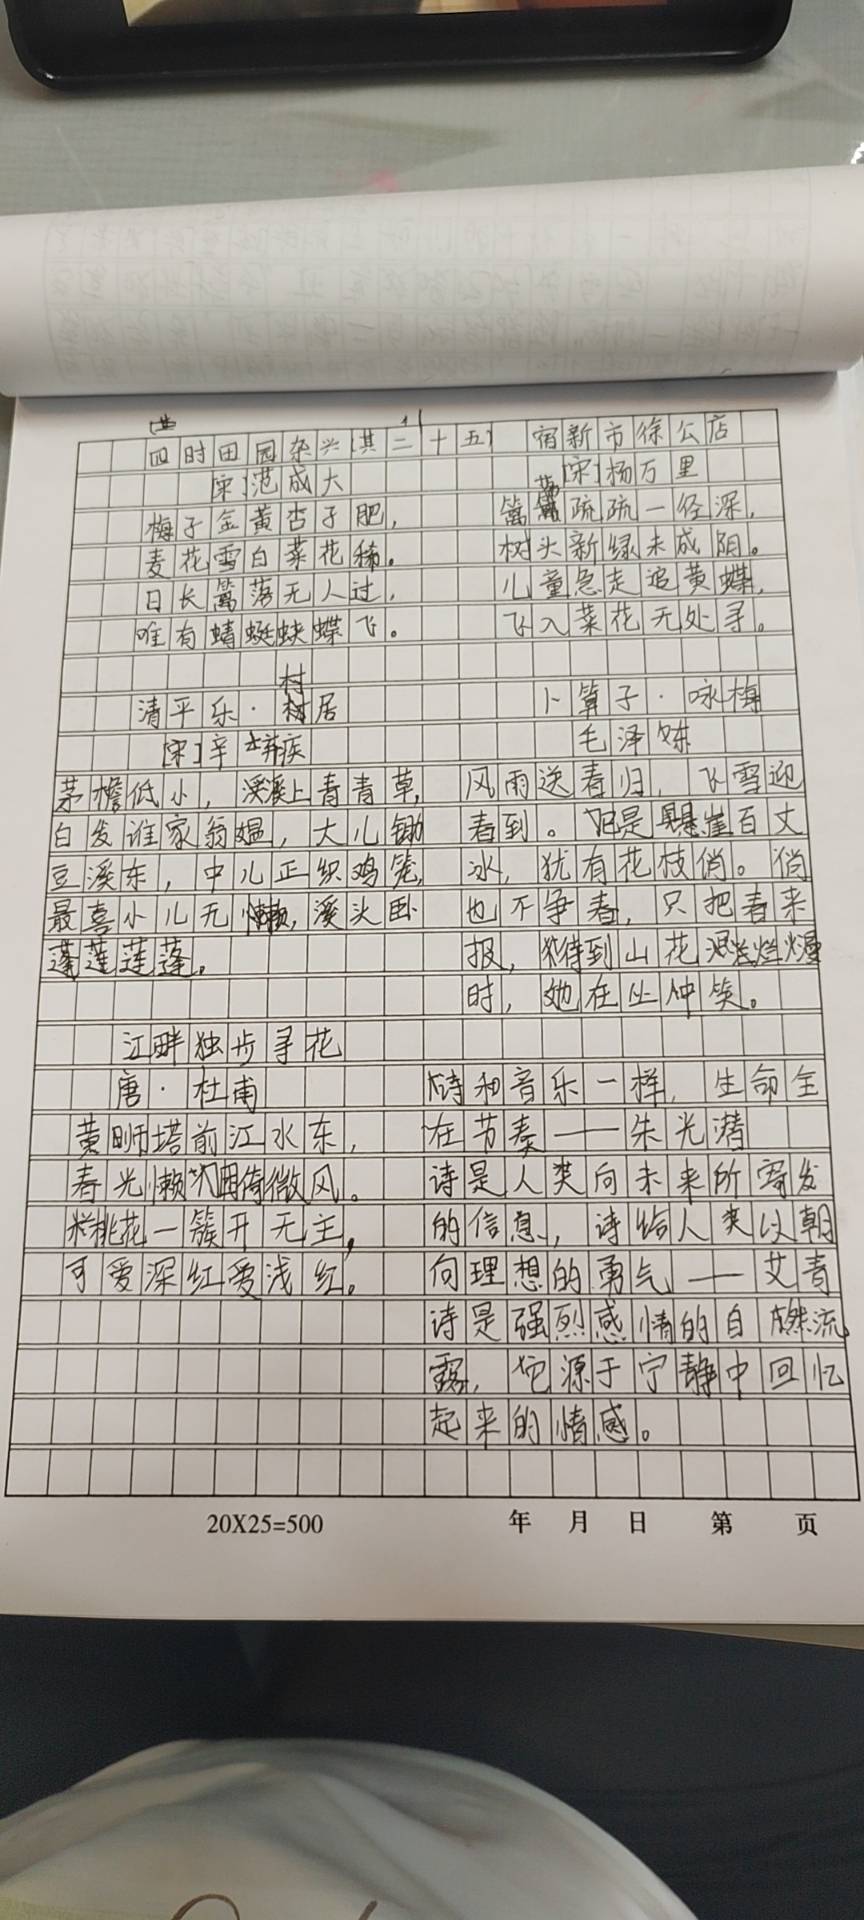 四时田园杂兴(其二十五)
[宋]范成大
梅子金黄杏子肥，
麦花雪白菜花稀。
日长篱落无人过，
唯有蜻蜓蛱蝶飞。
宿新市徐公店
[宋]杨万里
篱落疏疏一径深，
树头新绿未成阴。
儿童急走追黄蝶，
飞入菜花无处寻。
清平乐·村居
[宋]辛弃疾
茅檐低小，溪上青青草，
白发谁家翁媪，大儿锄
豆溪东，中儿正织鸡笼，
最喜小儿无懒，溪头卧
莲莲蓬。
卜算子·咏梅
毛泽东
风雨送春归，飞雪迎
春到。已是悬崖百丈
冰，犹有花枝俏。俏
也不争春，只把春来
报，待到山花烂熳
时，她在丛中笑。
江畔独步寻花
唐·杜甫
黄师塔前江水东，
春光懒困倚微风。
桃花一簇开无主，
可爱深红爱浅红。
诗和音乐一样，生命全
在节奏——朱光潜
诗是人类向未来所寄发
的信息，诗给人类以朝
向理想的勇气——艾青
诗是强烈感情的自然流
露，它源于宁静中回忆
起来的情感。
20X25=500 年 月 日 第 页